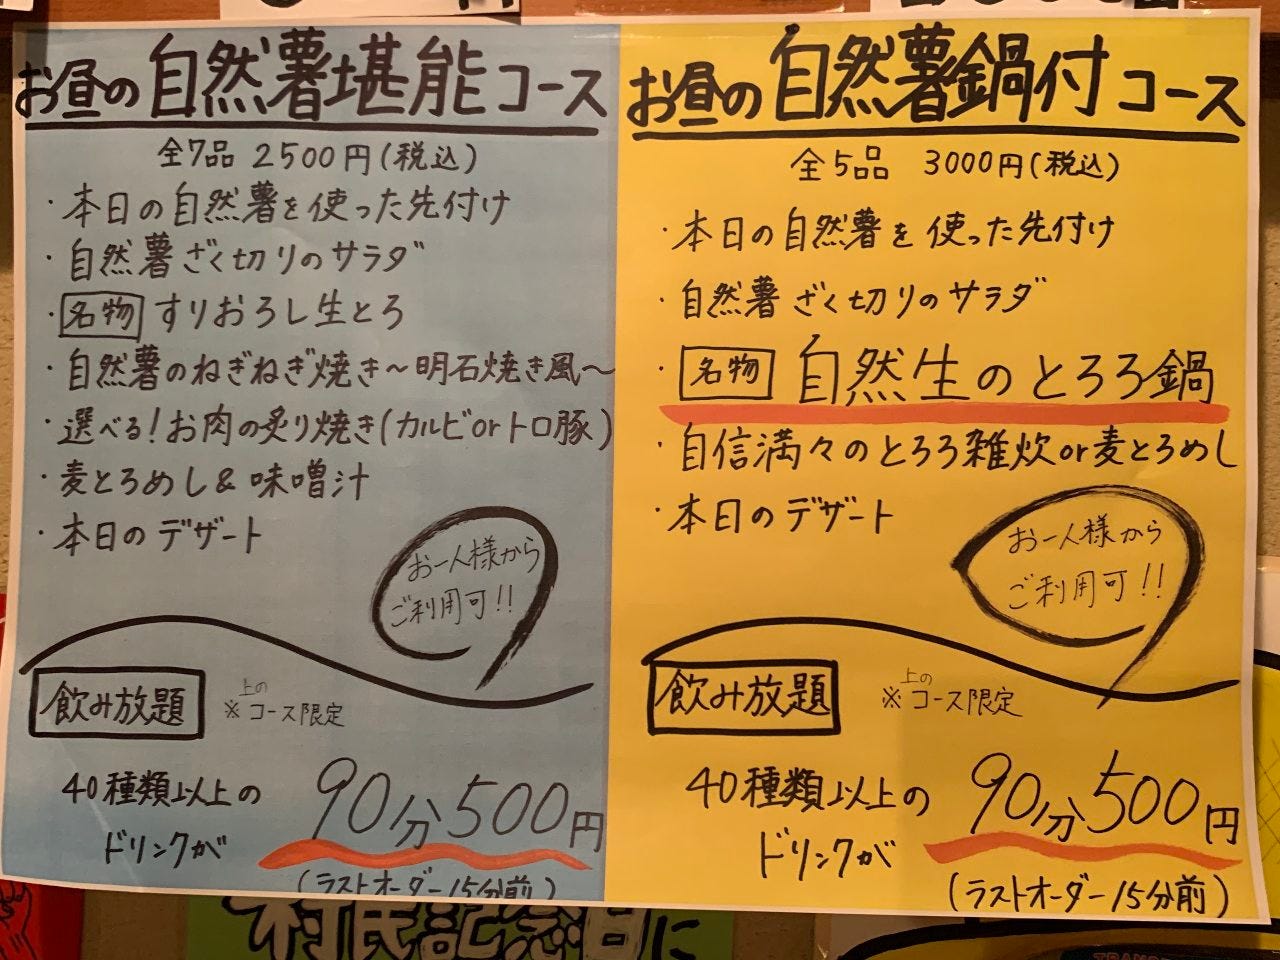 お昼の自然薯堪能コース
全7品 2500円(税込)
・本日の自然薯を使った先付け
・自然薯ざく切りのサラダ
・名物 すりおろし生とろ
・自然薯のねぎねぎ焼き〜明石焼き風〜
・選べる!お肉の炙り焼き(カルビorトロ豚)
・麦とろめし&味噌汁
・本日のデザート
お一人様から
ご利用可!!
飲み放題
※上のコース限定
40種類以上の
ドリンクが
90分500円
(ラストオーダー15分前)
お昼の自然薯鍋付コース
全5品 3000円(税込)
・本日の自然薯を使った先付け
・自然薯ざく切りのサラダ
・名物 自然生のとろろ鍋
・自信満々のとろろ雑炊or麦とろめし
・本日のデザート
お一人様から
ご利用可!!
飲み放題
※上のコース限定
40種類以上の
ドリンクが
90分500円
(ラストオーダー15分前)
村民記念日に